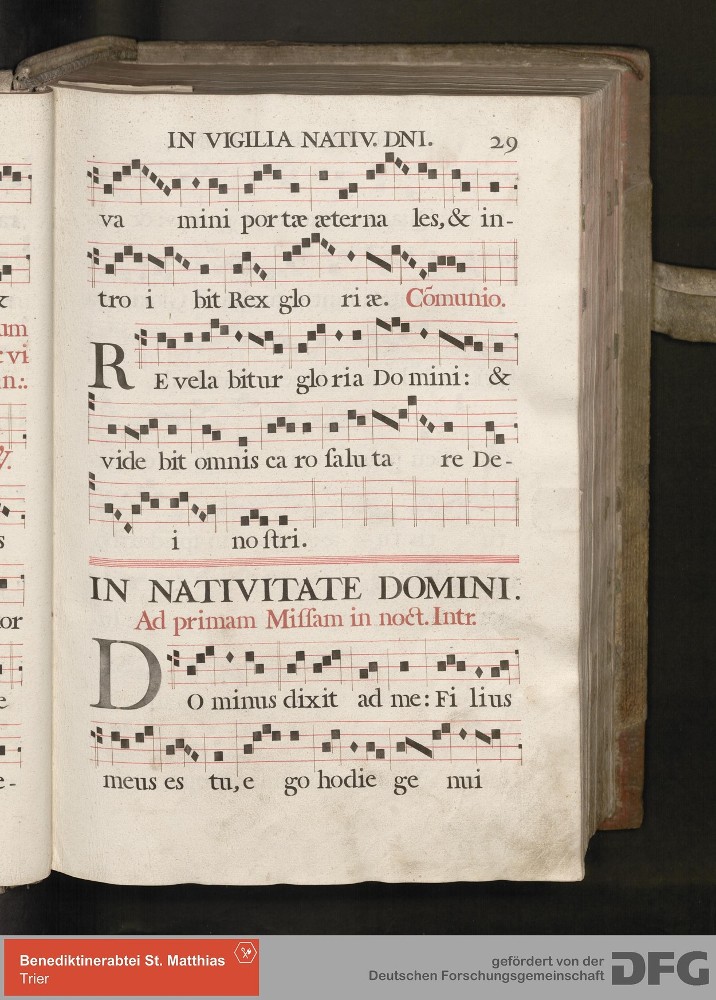 IN VIGILIA NATIV. DNI. 29
va mini portæ æterna les, & in-
tro i bit Rex glo ri æ. Cōmunio.
REvela bitur gloria Domini: &
vide bit omnis ca ro ſalu ta re De-
i no ſtri.
IN NATIVITATE DOMINI.
Ad primam Miſſam in noct. Intr.
DO minus dixit ad me: Fi lius
meus es tu, e go hodie ge nui
um
: vi
n.:
℣.
s
or
e
e-
Benediktinerabtei St. Matthias
Trier
gefördert von der
Deutschen Forschungsgemeinschaft
DFG